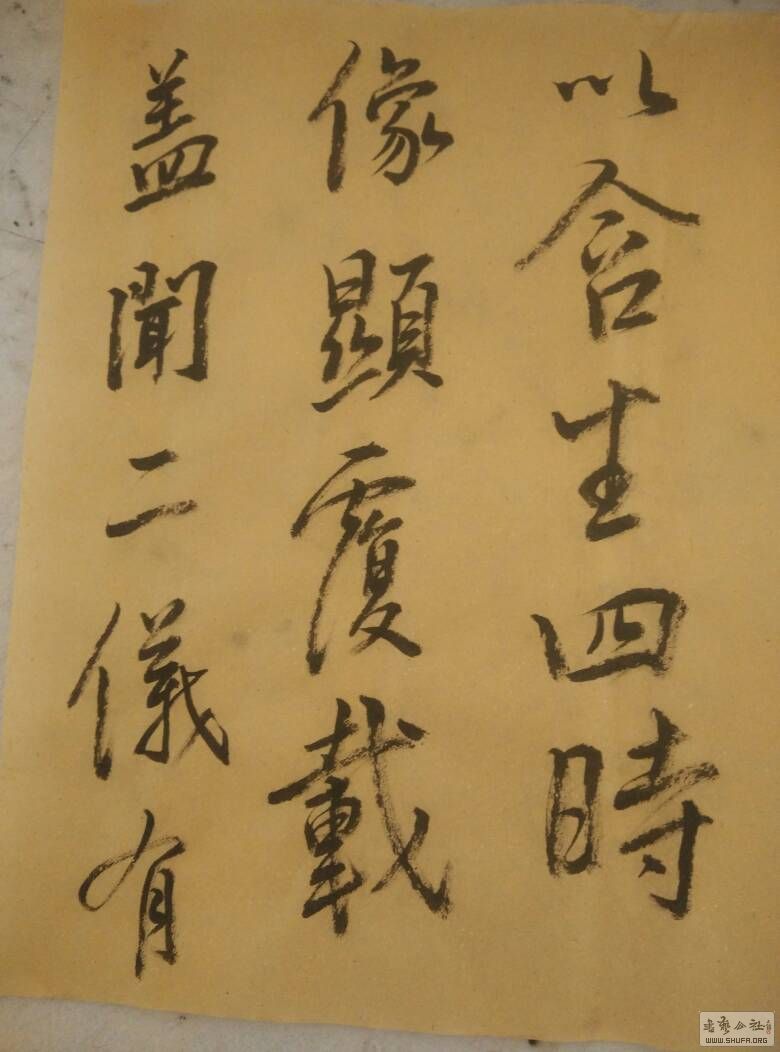 盖聞二儀有
像顯覆載
以含生四時
書藝公社
WWW.SHUFA.ORG